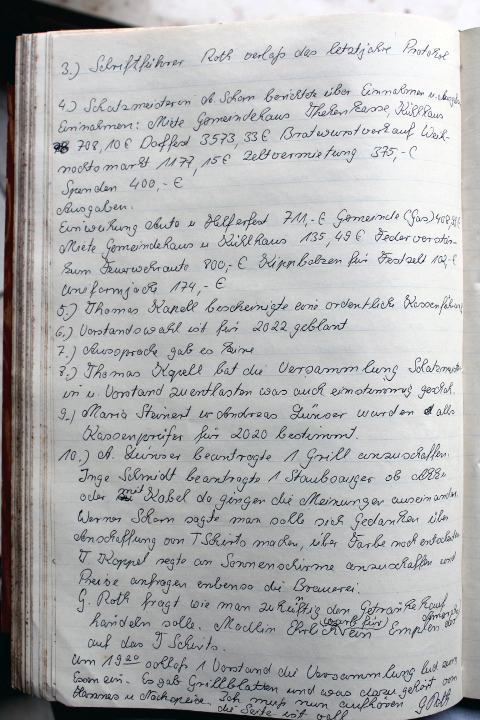 3.) Schriftführer Roth verlaß das letztjahre Protokol
4.) Schatzmeisterin A. Schorn berichtete über Einnahmen u. Ausgaben
Einnahmen: Miete Gemeindehaus Thekenkasse, Kühlhaus
708,10€ Dorffest 3573,33€ Bratwurstverkauf Weih-
nachtsmarkt 1177,15€ Zeltvermietung 375,-€
Spenden 400,-€
Ausgaben.
Einweihung Auto u Helferfest 711,-€ Gemeinde (Gas)
Miete Gemeindehaus u Kühlhaus 135,49€
zum Feuerwehrauto 800,-€ Kippbolzen für Festzelt 102,-€
Uniformjacke 174,-€
5.) Thomas Kapell bescheinigte eine ordentlich Kassenführung
6.) Vorstandswahl ist für 2022 geblant
7.) Aussprache gab es keine
8.) Thomas Kapell bat die Versammlung Schatzmeister
in u. Vorstand zu entlasten was auch einstimmig geschah.
9.) Mario Steinert u Andreas Zünser wurden als
Kassenprüfer für 2020 bestimmt.
10.) A. Zünser beantragte 1 Grill anzuschaffen.
Inge Schmidt beantragte 1 Staubsauger ob Akku
oder mit Kabel da gingen die Meinungen auseinander
Werner Schorn sagte man solle sich Gedanken über
Anschaffung von T Shirts machen, über Farbe noch entscheiden
T. Kappel regte an Sonnenschirme anzuschaffen und
Preise anfragen enbenso die Brauerei.
G. Roth fragt wie man zukünftig den Getränkekauf
handeln solle. Madlin Ehrlich warb für ein Emblem
auf das T Shirts.
Um 19 20 schloß 1 Vorstand die Versammlung lud zum
Essen ein. Es gab Grillplatten und was dazu gehört von
Hannes u Nachspeise. Ich muß nun aufhören G Roth
die Seite ist voll